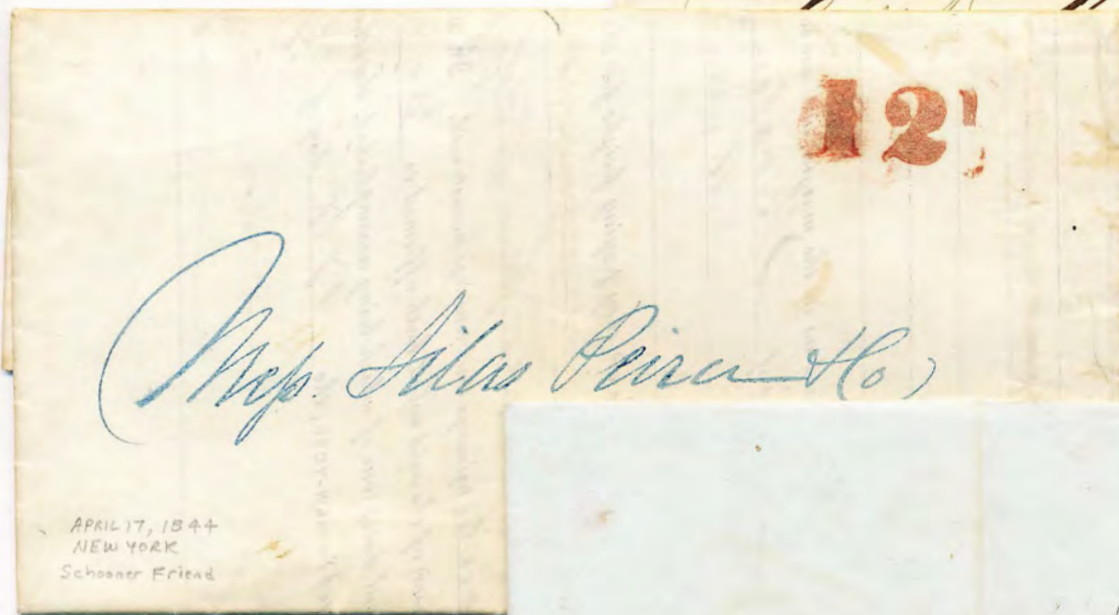 12
Mess. Silas Peirce & Co
APRIL 17, 1844
NEW YORK
Schooner Friend